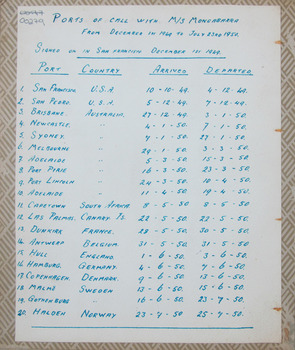 PORTS OF CALL WITH M/S MONGABARRA.
FROM DECEMBER 1st 1949 TO JULY 23rd 1950.
SIGNED ON IN SAN FRANCISCO DECEMBER 1st 1949.
PORT COUNTRY ARRIVED DEPARTED
1. SAN FRANCISCO U.S.A. 4-12-49.
2. SAN PEDRO. U.S.A. 5-12-49. 7-12-49.
3. BRISBANE AUSTRALIA. 27-12-49. 3-1-50.
4. NEWCASTLE. " 4-1-50. 7-1-50.
5. SYDNEY. " 7-1-50. 27-1-50.
6. MELBOURNE " 29-1-50. 3-3-50.
7. ADELAIDE " 5-3-50. 15-3-50.
8. PORT PIRIE " 16-3-50. 23-3-50.
9. PORT LINCOLN " 24-3-50. 10-4-50.
10. ADELAIDE " 11-4-50. 19-4-50.
11. CAPETOWN SOUTH AFRICA 8-5-50. 8-5-50.
12. LAS PALMAS. CANARY IS. 22-5-50. 22-5-50.
13. DUNKIRK FRANCE. 28-5-50. 30-5-50.
14. ANTWERP BELGIUM. 31-5-50. 31-5-50.
15. HULL ENGLAND 1-6-50. 3-6-50.
16. HAMBURG. GERMANY. 4-6-50. 7-6-50.
17. COPENHAGEN. DENMARK. 9-6-50. 13-6-50.
18. MALMÖ SWEDEN 13-6-50. 15-6-50.
19. GOTHENBURG " 16-6-50. 23-7-50.
20. HALDEN NORWAY 23-7-50 25-7-50.